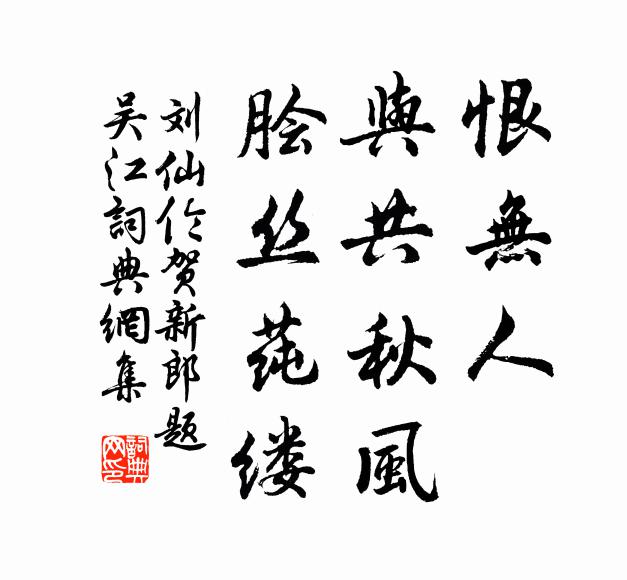 恨無人
與共秋風
脍丝莼缕
刘仙伦贺新郎题
吴江詞典網集
詞典网印